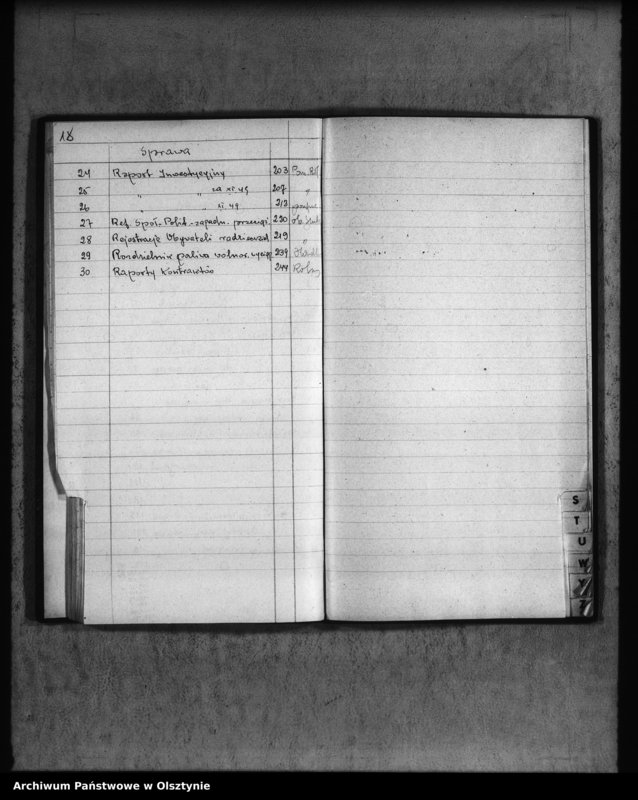 18
Sprawa
24 Raport Inwestycyjny 203
25 " " za XI.49 207 "
26 " " XI.49 212
27 Ref. Społ. Polit. - 220
28 Rejestracje Obywateli 219 "
29 Rozdzielnik paliwa 239
30 Raporty Kontraktów 244
S
T
U
W
Y
Z
Archiwum Państwowe w Olsztynie